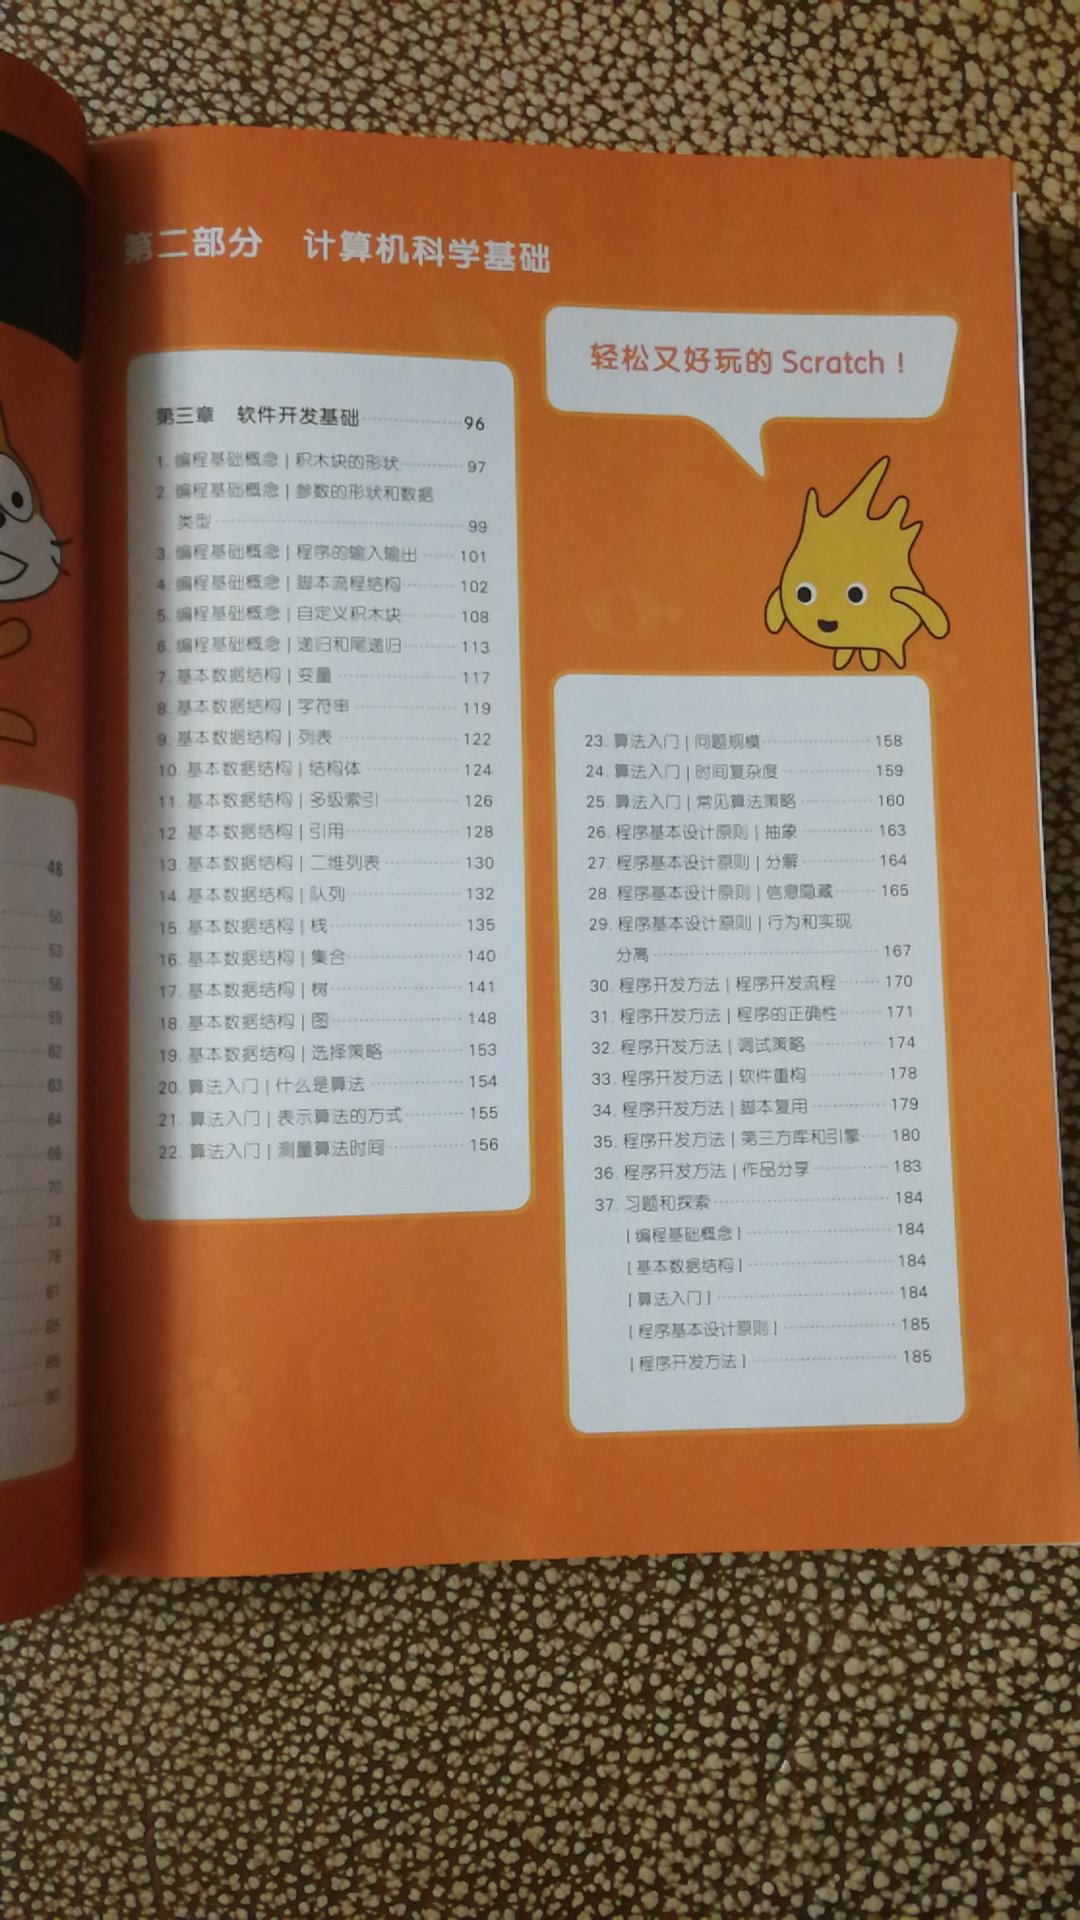 第二部分 计算机科学基础
轻松又好玩的 Scratch！
第三章 软件开发基础 96
1. 编程基础概念 | 积木块的形状 97
2. 编程基础概念 | 参数的形状和数据
类型 99
3. 编程基础概念 | 程序的输入输出 101
4. 编程基础概念 | 脚本流程结构 102
5. 编程基础概念 | 自定义积木块 108
6. 编程基础概念 | 递归和尾递归 113
7. 基本数据结构 | 变量 117
8. 基本数据结构 | 字符串 119
9. 基本数据结构 | 列表 122
10. 基本数据结构 | 结构体 124
11. 基本数据结构 | 多级索引 126
12. 基本数据结构 | 引用 128
13. 基本数据结构 | 二维列表 130
14. 基本数据结构 | 队列 132
15. 基本数据结构 | 栈 135
16. 基本数据结构 | 集合 140
17. 基本数据结构 | 树 141
18. 基本数据结构 | 图 148
19. 基本数据结构 | 选择策略 153
20. 算法入门 | 什么是算法 154
21. 算法入门 | 表示算法的方式 155
22. 算法入门 | 测量算法时间 156
23. 算法入门 | 问题规模 158
24. 算法入门 | 时间复杂度 159
25. 算法入门 | 常见算法策略 160
26. 程序基本设计原则 | 抽象 163
27. 程序基本设计原则 | 分解 164
28. 程序基本设计原则 | 信息隐藏 165
29. 程序基本设计原则 | 行为和实现
分离 167
30. 程序开发方法 | 程序开发流程 170
31. 程序开发方法 | 程序的正确性 171
32. 程序开发方法 | 调试策略 174
33. 程序开发方法 | 软件重构 178
34. 程序开发方法 | 脚本复用 179
35. 程序开发方法 | 第三方库和引擎 180
36. 程序开发方法 | 作品分享 183
37. 习题和探索 184
[ 编程基础概念 ] 184
[ 基本数据结构 ] 184
[ 算法入门 ] 184
[ 程序基本设计原则 ] 185
[ 程序开发方法 ] 185
48
50
53
56
59
62
63
64
66
70
74
78
81
85
88
90